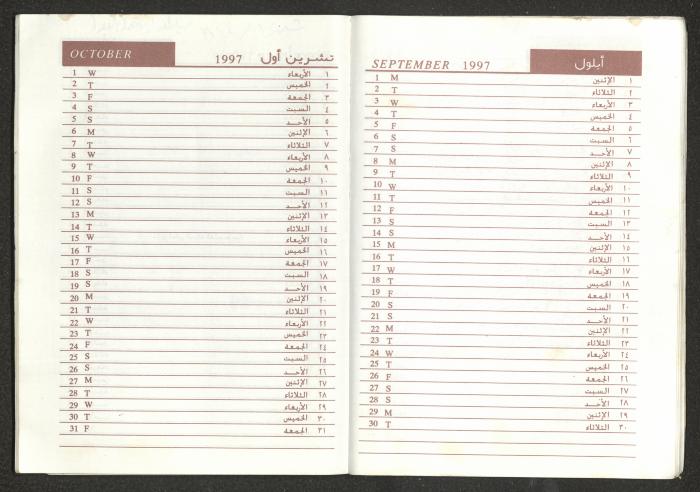 OCTOBER 1997 تشرين أول
1 W الأربعاء ١
2 T الخميس ٢
3 F الجمعة ٣
4 S السبت ٤
5 S الأحـد ٥
6 M الإثنين ٦
7 T الثلاثاء ٧
8 W الأربعاء ٨
9 T الخميس ٩
10 F الجمعة ١٠
11 S السبت ١١
12 S الأحـد ١٢
13 M الإثنين ١٣
14 T الثلاثاء ١٤
15 W الأربعاء ١٥
16 T الخميس ١٦
17 F الجمعة ١٧
18 S السبت ١٨
19 S الأحـد ١٩
20 M الإثنين ٢٠
21 T الثلاثاء ٢١
22 W الأربعاء ٢٢
23 T الخميس ٢٣
24 F الجمعة ٢٤
25 S السبت ٢٥
26 S الأحـد ٢٦
27 M الإثنين ٢٧
28 T الثلاثاء ٢٨
29 W الأربعاء ٢٩
30 T الخميس ٣٠
31 F الجمعة ٣١
SEPTEMBER 1997 أيلول
1 M الإثنين ١
2 T الثلاثاء ٢
3 W الأربعاء ٣
4 T الخميس ٤
5 F الجمعة ٥
6 S السبت ٦
7 S الأحـد ٧
8 M الإثنين ٨
9 T الثلاثاء ٩
10 W الأربعاء ١٠
11 T الخميس ١١
12 F الجمعة ١٢
13 S السبت ١٣
14 S الأحـد ١٤
15 M الإثنين ١٥
16 T الثلاثاء ١٦
17 W الأربعاء ١٧
18 T الخميس ١٨
19 F الجمعة ١٩
20 S السبت ٢٠
21 S الأحـد ٢١
22 M الإثنين ٢٢
23 T الثلاثاء ٢٣
24 W الأربعاء ٢٤
25 T الخميس ٢٥
26 F الجمعة ٢٦
27 S السبت ٢٧
28 S الأحـد ٢٨
29 M الإثنين ٢٩
30 T الثلاثاء ٣٠